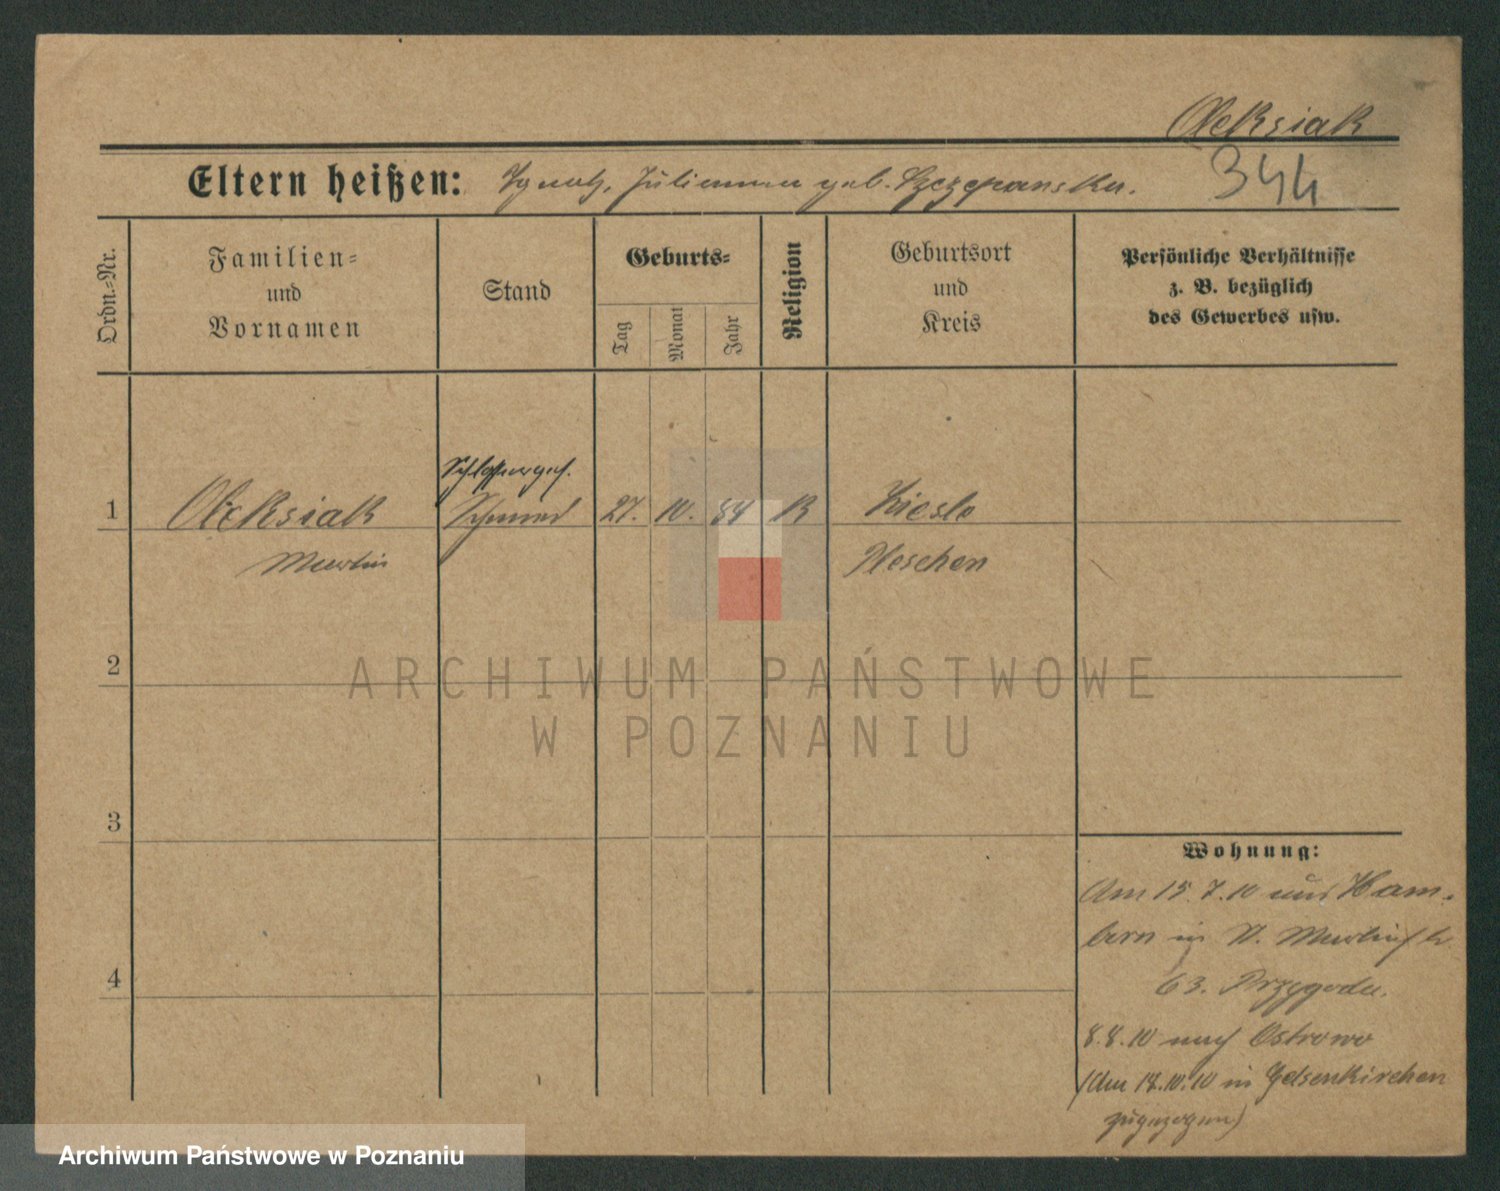 Oleksiak
Eltern heißen: Ignatz, Julianna geb. Szczepanska.
344
Ordn.-Nr.
Familien-
und
Vornamen
Stand
Geburts-
Tag
Monat
Jahr
Religion
Geburtsort
und
Kreis
Persönliche Verhältnisse
z. B. bezüglich
des Gewerbes usw.
Schlosserges.
1 Oleksiak 27. 10. 84 K
Martin Pleschen
2
ARCHIWUM PAŃSTWOWE
W POZNANIU
3
4
Wohnung:
Am 15.7.10 aus Ham-
born in St. Martinstr.
63. Przygoda.
8.8.10 nach Ostrowo
(Am 18.10.10 in Gelsenkirchen
zugezogen)
Archiwum Państwowe w Poznaniu